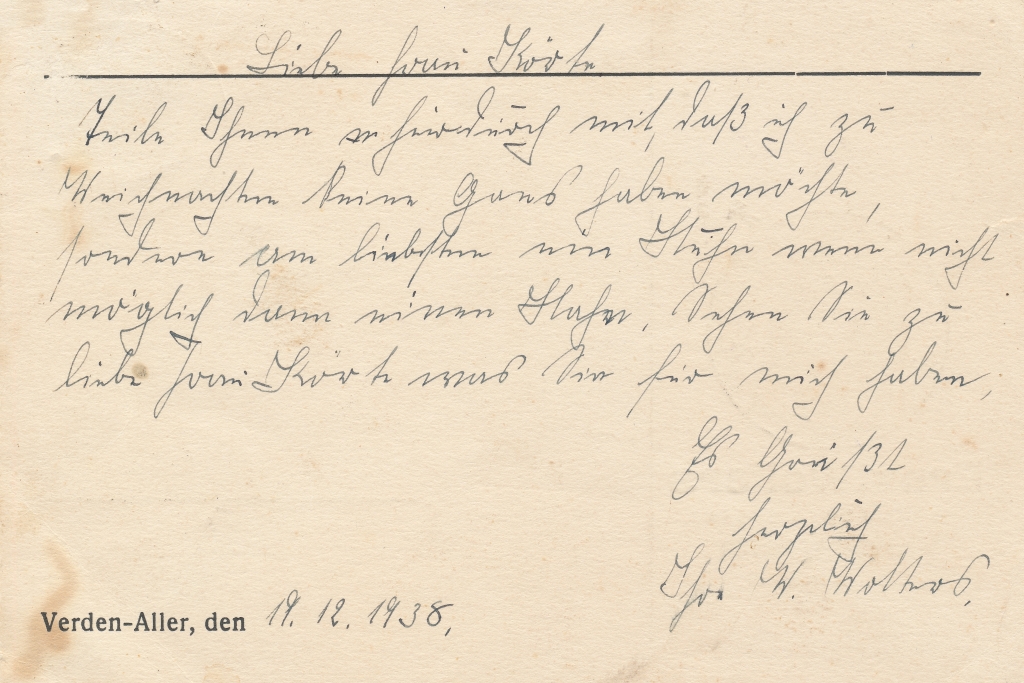 Liebe Frau Körte
Teile Ihnen hierdurch mit, daß ich zu
Weichnachten keine Gans haben möchte,
sondern am liebsten ein Huhn wenn nicht
möglich dann einen Hahn. Sehen Sie zu
liebe Frau Körte was Sie für mich haben,
Es Grüßt
herzlich
Ihre W. Wolters.
Verden-Aller, den 19. 12. 1938.